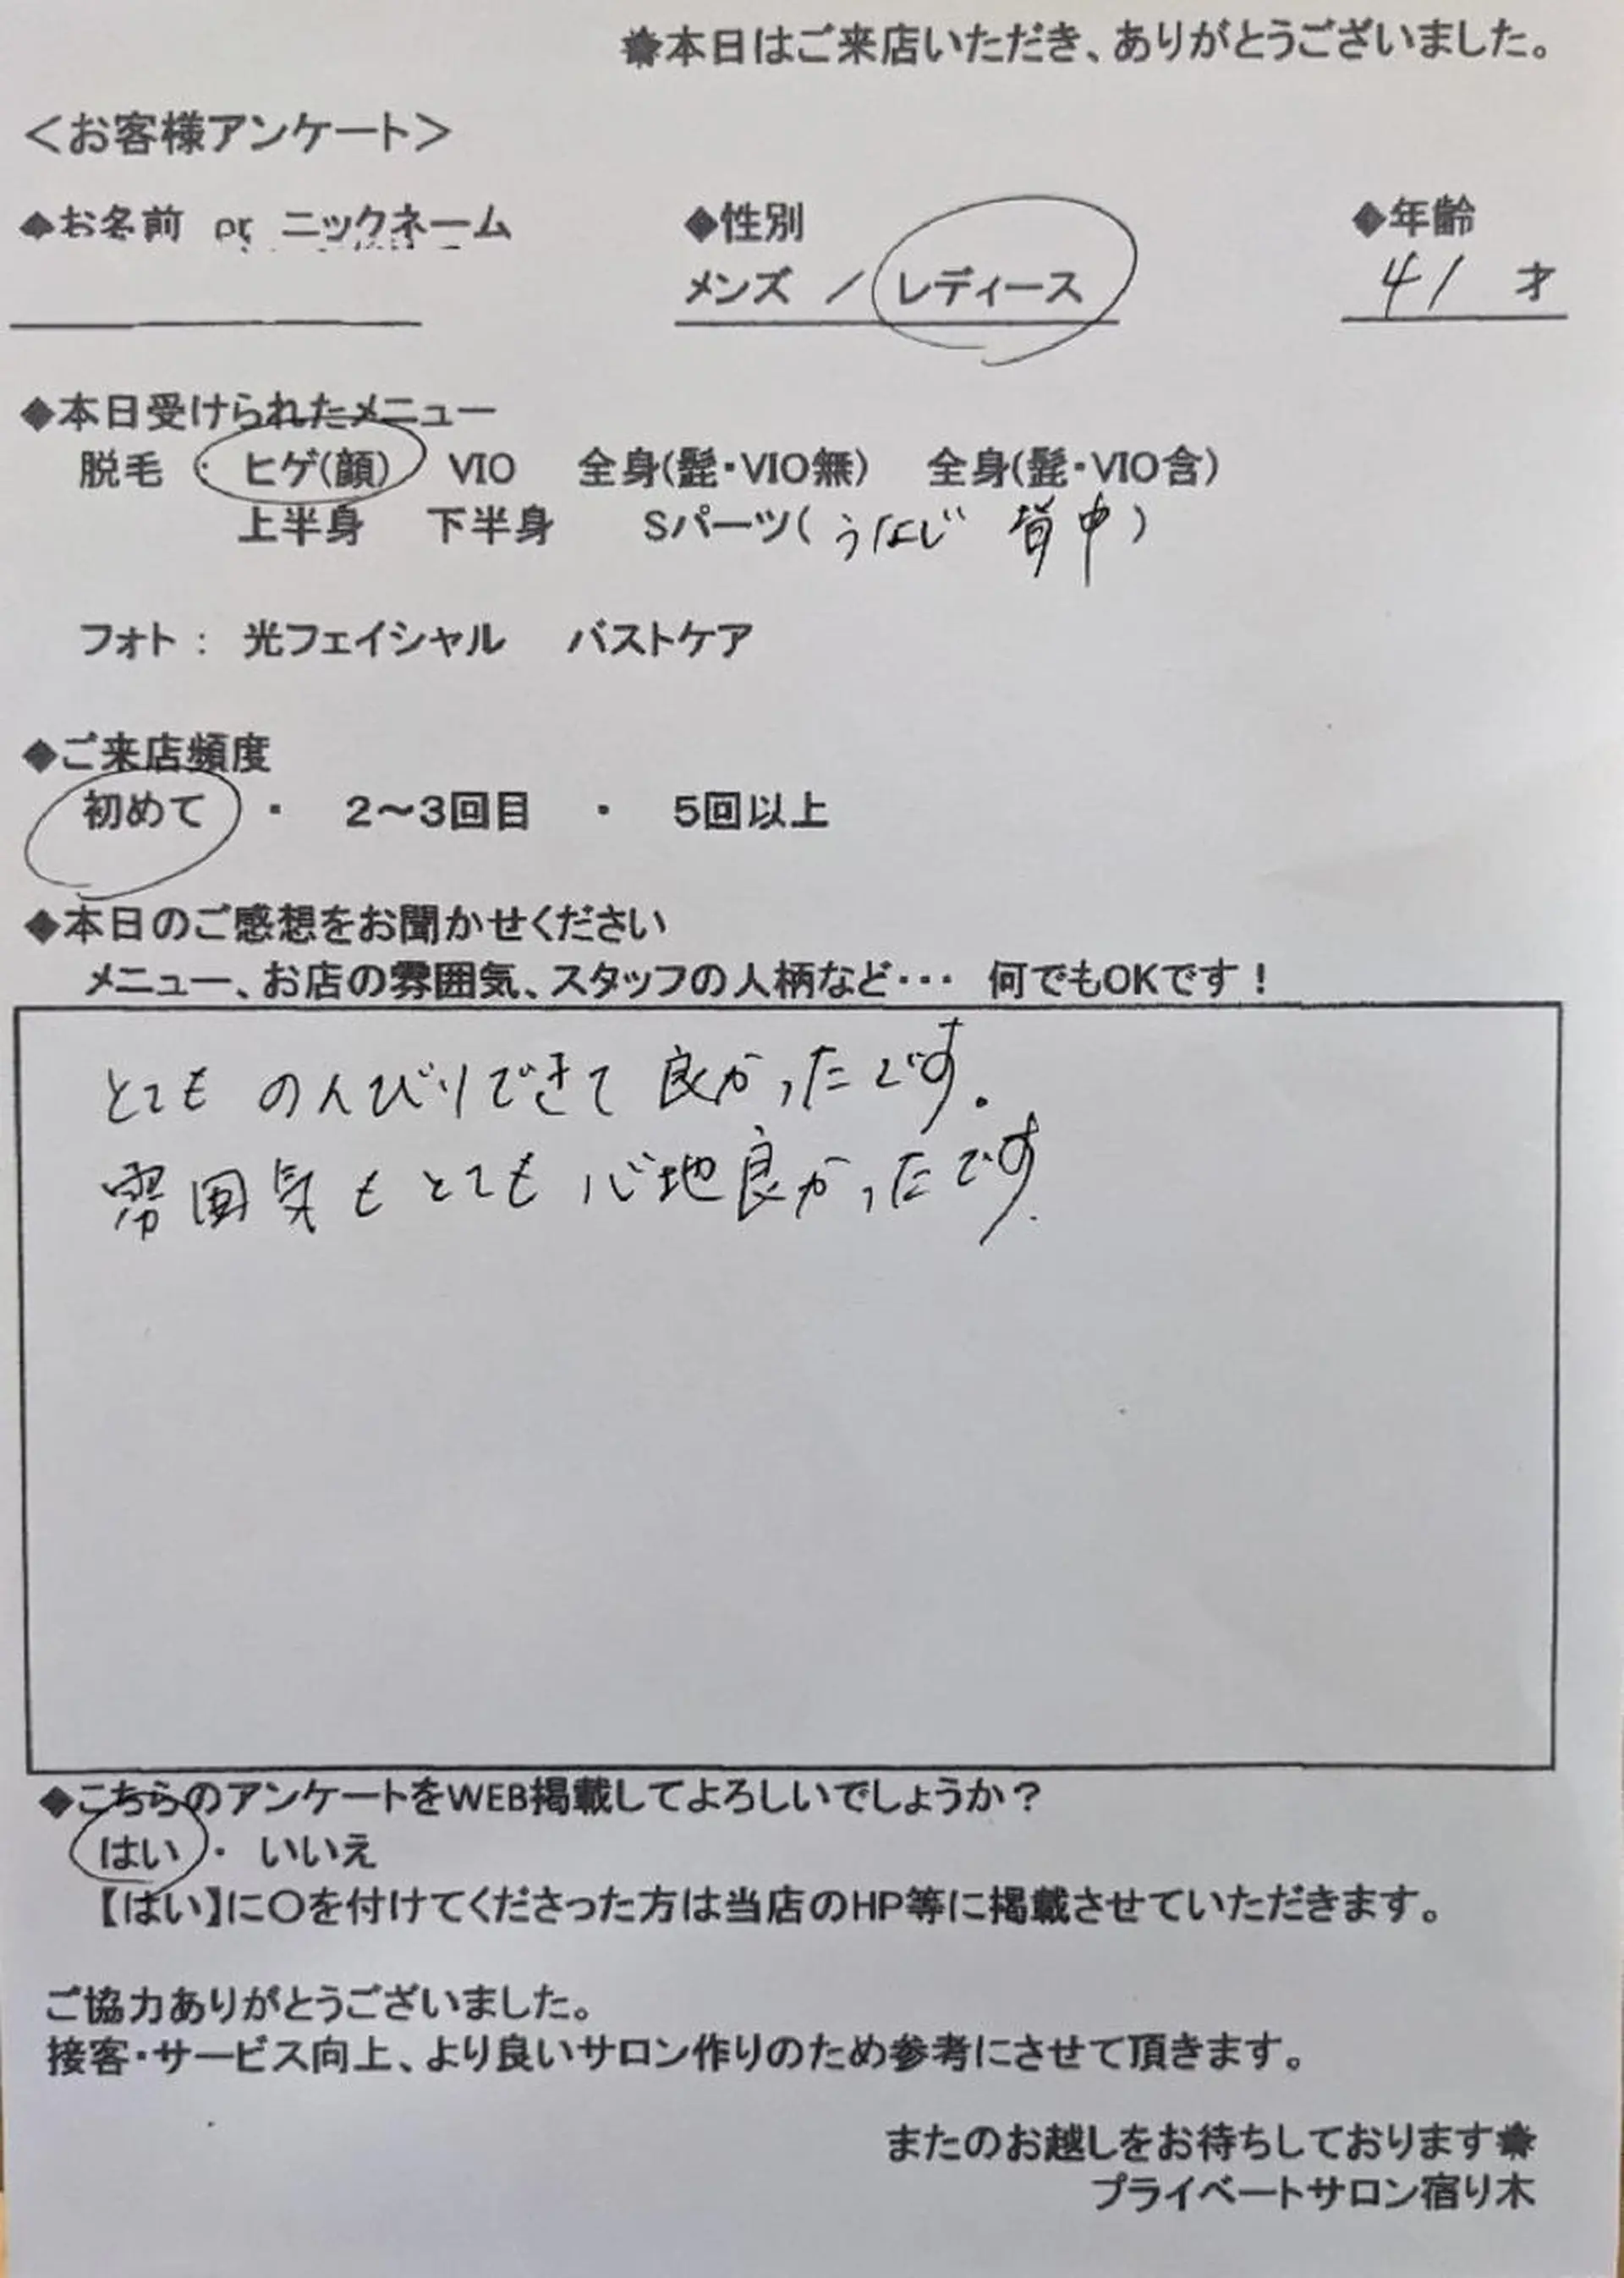 ✸本日はご来店いただき、ありがとうございました。
＜お客様アンケート＞
◆お名前 or ニックネーム ◆性別 ◆年齢
メンズ ／ レディース 41 才
◆本日受けられたメニュー
脱毛 ・ ヒゲ(顔) VIO 全身(髭・VIO無) 全身(髭・VIO含)
上半身 下半身 Sパーツ( うなじ 背中 )
フォト： 光フェイシャル バストケア
◆ご来店頻度
初めて ・ 2～3回目 ・ 5回以上
◆本日のご感想をお聞かせください
メニュー、お店の雰囲気、スタッフの人柄など・・・ 何でもOKです！
とても のんびりできて 良かったです。
雰囲気も とても 心地良かったです.
◆こちらのアンケートをWEB掲載してよろしいでしょうか？
はい ・ いいえ
【はい】に○を付けてくださった方は当店のHP等に掲載させていただきます。
ご協力ありがとうございました。
接客・サービス向上、より良いサロン作りのため参考にさせて頂きます。
またのお越しをお待ちしております✸
プライベートサロン宿り木